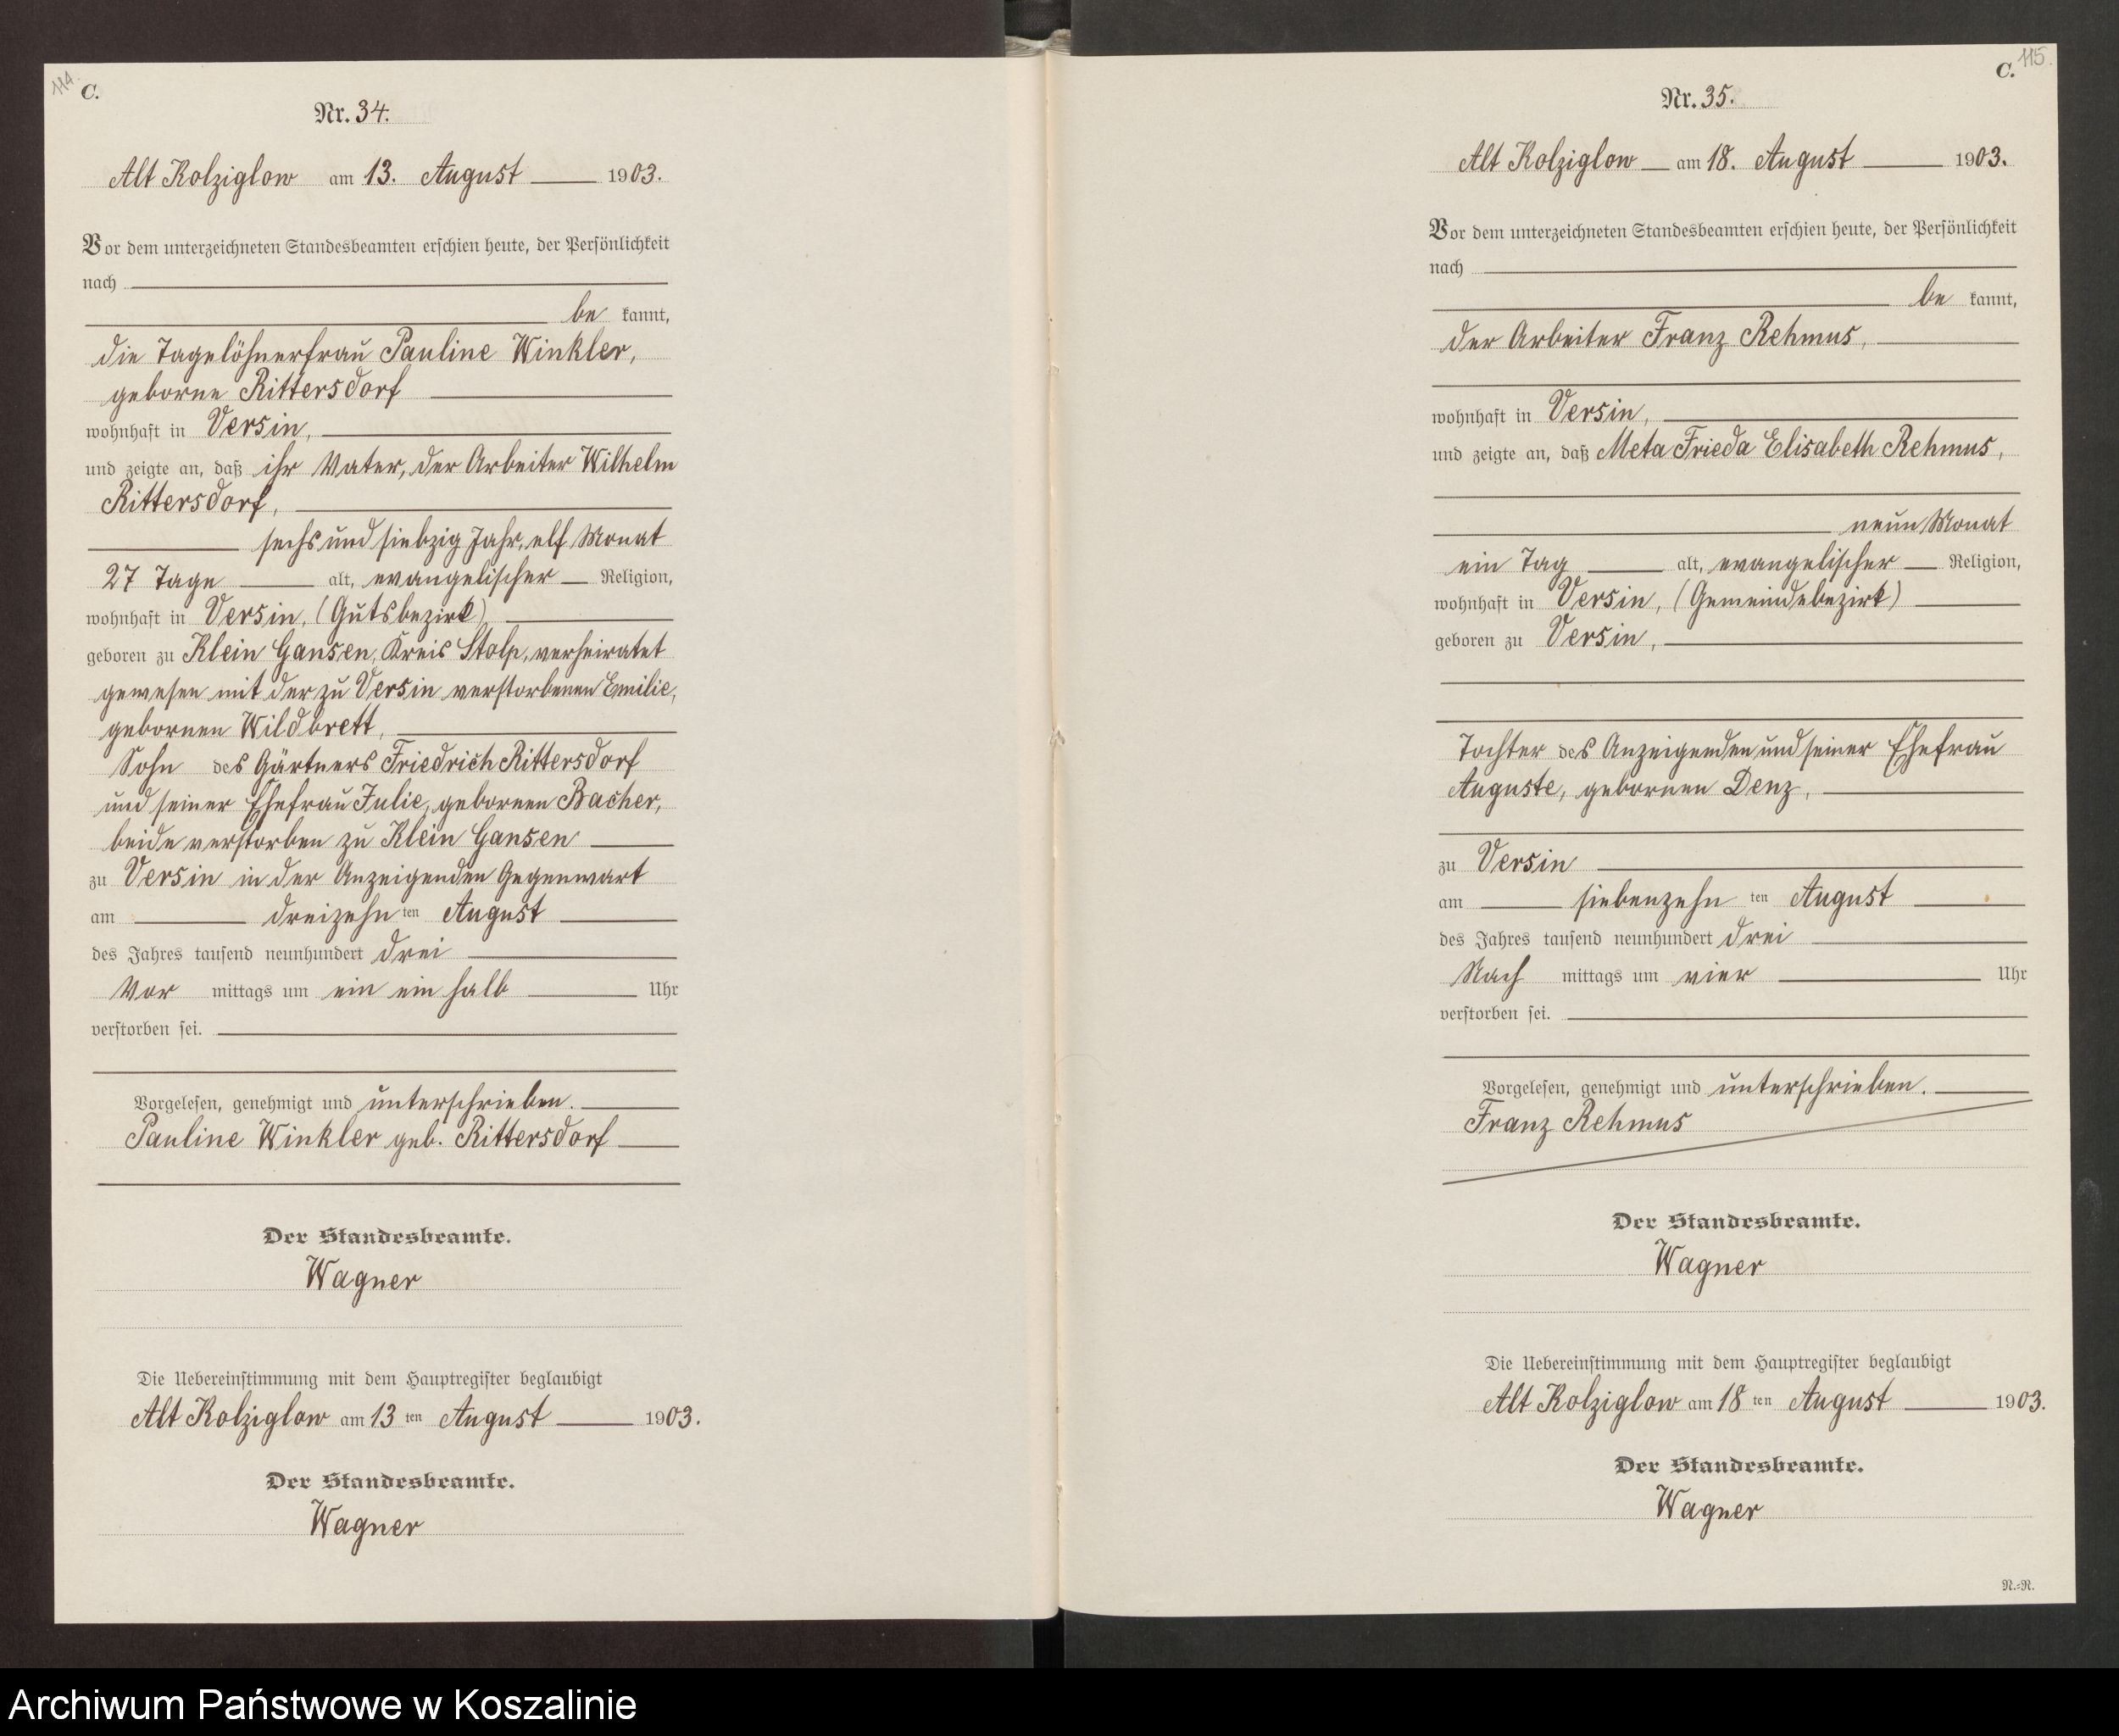 114.
C.
Nr. 34.
Alt Kolziglow am 13. August 1903.
Vor dem unterzeichneten Standesbeamten erschien heute, der Persönlichkeit
nach
be kannt,
die Tagelöhnerfrau Pauline Winkler,
geborne Rittersdorf
wohnhaft in Versin,
und zeigte an, daß ihr Vater, der Arbeiter Wilhelm
Rittersdorf,
sechs und siebzig Jahr, elf Monat
27 Tage alt, evangelischer Religion,
wohnhaft in Versin, (Gutsbezirk)
geboren zu Klein Gansen, Kreis Stolp, verheiratet
gewesen mit der zu Versin verstorbenen Emilie,
gebornen Wildbrett,
Sohn des Gärtners Friedrich Rittersdorf
und seiner Ehefrau Julie, gebornen Bacher,
beide verstorben zu Klein Gansen
zu Versin in der Anzeigenden Gegenwart
am dreizehn ten August
des Jahres tausend neunhundert drei
Vor mittags um ein ein halb Uhr
verstorben sei.
Vorgelesen, genehmigt und unterschrieben.
Pauline Winkler geb. Rittersdorf
Der Standesbeamte.
Wagner
Die Uebereinstimmung mit dem Hauptregister beglaubigt
Alt Kolziglow am 13 ten August 1903.
Der Standesbeamte.
Wagner
115.
C.
Nr. 35.
Alt Kolziglow am 18. August 1903.
Vor dem unterzeichneten Standesbeamten erschien heute, der Persönlichkeit
nach
be kannt,
der Arbeiter Franz Rehmus,
wohnhaft in Versin,
und zeigte an, daß Meta Frieda Elisabeth Rehmus,
neun Monat
ein Tag alt, evangelischer Religion,
wohnhaft in Versin, (Gemeindebezirk)
geboren zu Versin,
Tochter des Anzeigenden und seiner Ehefrau
Auguste, gebornen Denz,
zu Versin
am siebenzehn ten August
des Jahres tausend neunhundert drei
Nach mittags um vier Uhr
verstorben sei.
Vorgelesen, genehmigt und unterschrieben.
Franz Rehmus
Der Standesbeamte.
Wagner
Die Uebereinstimmung mit dem Hauptregister beglaubigt
Alt Kolziglow am 18 ten August 1903.
Der Standesbeamte.
Wagner
N.=N.
Archiwum Państwowe w Koszalinie